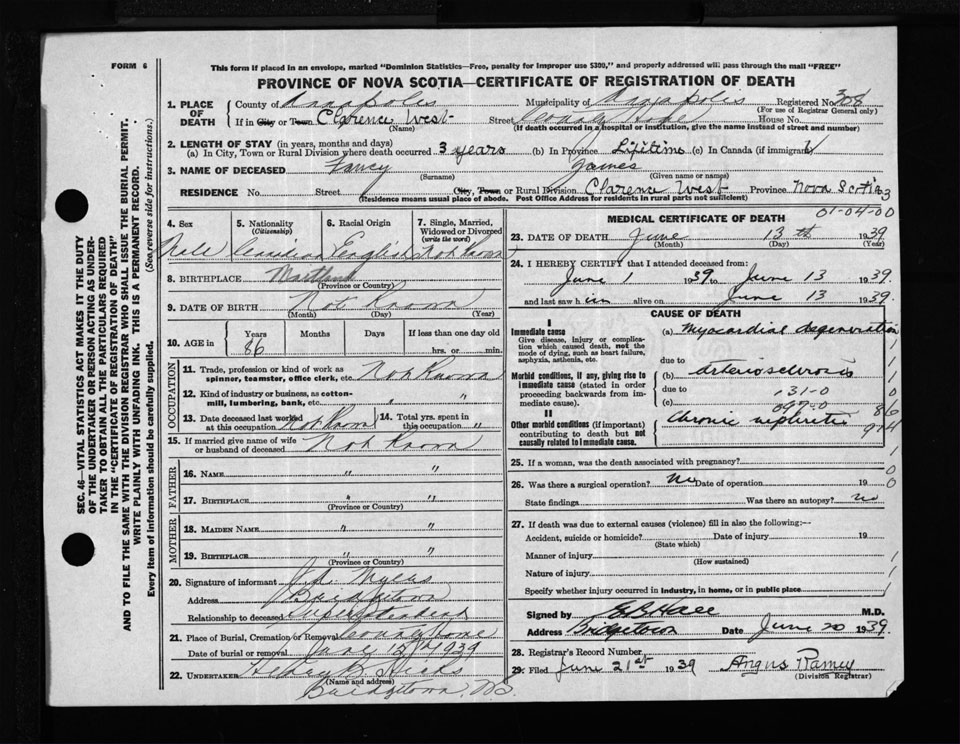 FORM 6
This form if placed in an envelope, marked "Dominion Statistics—Free, penalty for improper use $300," and properly addressed will pass through the mail "FREE"
PROVINCE OF NOVA SCOTIA—CERTIFICATE OF REGISTRATION OF DEATH
1. PLACE OF DEATH County of Annapolis Municipality of Annapolis Registered No. 308
(For use of Registrar General only)
If in City or Town Clarence West Street County Home House No.
(Name) (If death occurred in a hospital or institution, give the name instead of street and number)
2. LENGTH OF STAY (in years, months and days)
(a) In City, Town or Rural Division where death occurred 3 years (b) In Province Lifetime (c) In Canada (if immigrant)
3. NAME OF DECEASED James
(Surname) (Given name or names)
RESIDENCE No. Street City, Town or Rural Division Clarence West Province Nova Scotia 3
(Residence means usual place of abode. Post Office Address for residents in rural parts not sufficient)
01-04-00
4. Sex 5. Nationality (Citizenship) 6. Racial Origin 7. Single, Married, Widowed or Divorced (write the word)
Male Canadian English Not Known
8. BIRTHPLACE Maitland
(Province or Country)
9. DATE OF BIRTH Not Known
(Month) (Day) (Year)
10. AGE in Years Months Days If less than one day old
86 hrs. or min.
OCCUPATION
11. Trade, profession or kind of work as spinner, teamster, office clerk, etc. Not Known
12. Kind of industry or business, as cotton-mill, lumbering, bank, etc. " "
13. Date deceased last worked at this occupation Not Known 14. Total yrs. spent in this occupation "
15. If married give name of wife or husband of deceased Not Known
FATHER
16. NAME " "
17. BIRTHPLACE " "
(Province or Country)
MOTHER
18. MAIDEN NAME " "
19. BIRTHPLACE " "
(Province or Country)
20. Signature of informant Myers
Address Bridgetown
Relationship to deceased Superintendent
21. Place of Burial, Cremation or Removal County Home
Date of burial or removal June 15th 1939
22. UNDERTAKER Hicks
(Name and address)
Bridgetown, NS
MEDICAL CERTIFICATE OF DEATH
23. DATE OF DEATH June 13th 1939
(Month) (Day) (Year)
24. I HEREBY CERTIFY that I attended deceased from:
June 1 1939 to June 13 1939
and last saw him alive on June 13 1939
CAUSE OF DEATH
I
Immediate cause
Give disease, injury or complication which caused death, not the mode of dying, such as heart failure, asphyxia, asthenia, etc.
(a) Myocardial degeneration
due to
Morbid conditions, if any, giving rise to immediate cause (stated in order proceeding backwards from immediate cause).
(b) Arteriosclerosis
due to
(c)
II
Other morbid conditions (if important) contributing to death but not causally related to immediate cause.
Chronic nephritis
25. If a woman, was the death associated with pregnancy?
26. Was there a surgical operation? No Date of operation 19
State findings Was there an autopsy? no
27. If death was due to external causes (violence) fill in also the following:—
Accident, suicide or homicide? Date of injury 19
(State which)
Manner of injury
(How sustained)
Nature of injury
Specify whether injury occurred in industry, in home, or in public place
Signed by M.D.
Address Bridgetown Date June 20 1939
28. Registrar's Record Number
29. Filed June 21st 1939 Angus Ramey
(Division Registrar)
SEC. 46—VITAL STATISTICS ACT MAKES IT THE DUTY
OF THE UNDERTAKER OR PERSON ACTING AS UNDER-
TAKER TO OBTAIN ALL THE PARTICULARS REQUIRED
IN THE "CERTIFICATE OF REGISTRATION OF DEATH"
AND TO FILE THE SAME WITH THE DIVISION REGISTRAR WHO SHALL ISSUE THE BURIAL PERMIT.
WRITE PLAINLY WITH UNFADING INK. THIS IS A PERMANENT RECORD.
Every item of information should be carefully supplied. (See reverse side for instructions.)